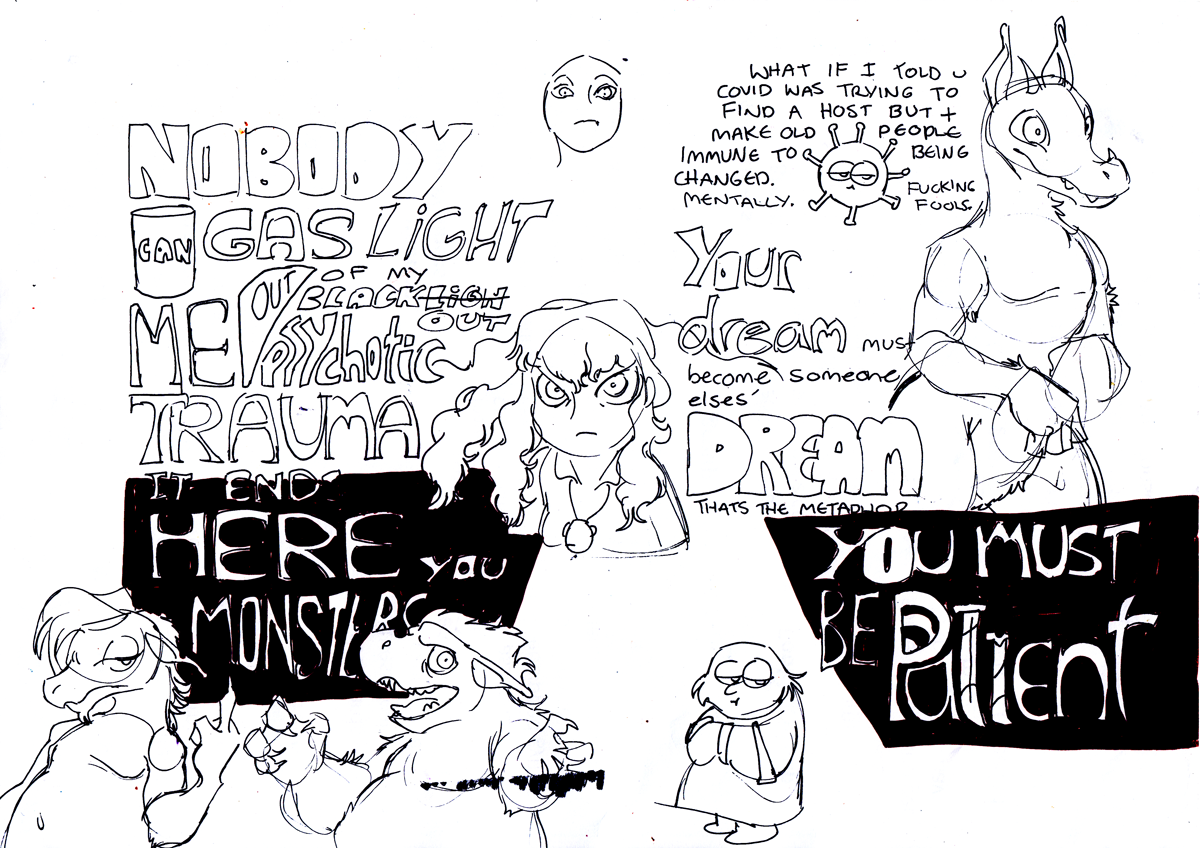 NOBODY
CAN GASLIGHT
ME OUT OF MY
BLACKLIGH
OUT
PSYchotic
TRAUMA
IT ENDS
HERE you
MONSTERS
WHAT IF I TOLD U
COVID WAS TRYING TO
FIND A HOST BUT +
MAKE OLD PEOPLE
IMMUNE TO BEING
CHANGED.
MENTALLY.
FUCKING
FOOLS.
Your
dream must
become someone
elses'
DREAM
THATS THE METAPHOR
YOU MUST
BE PatIEnt